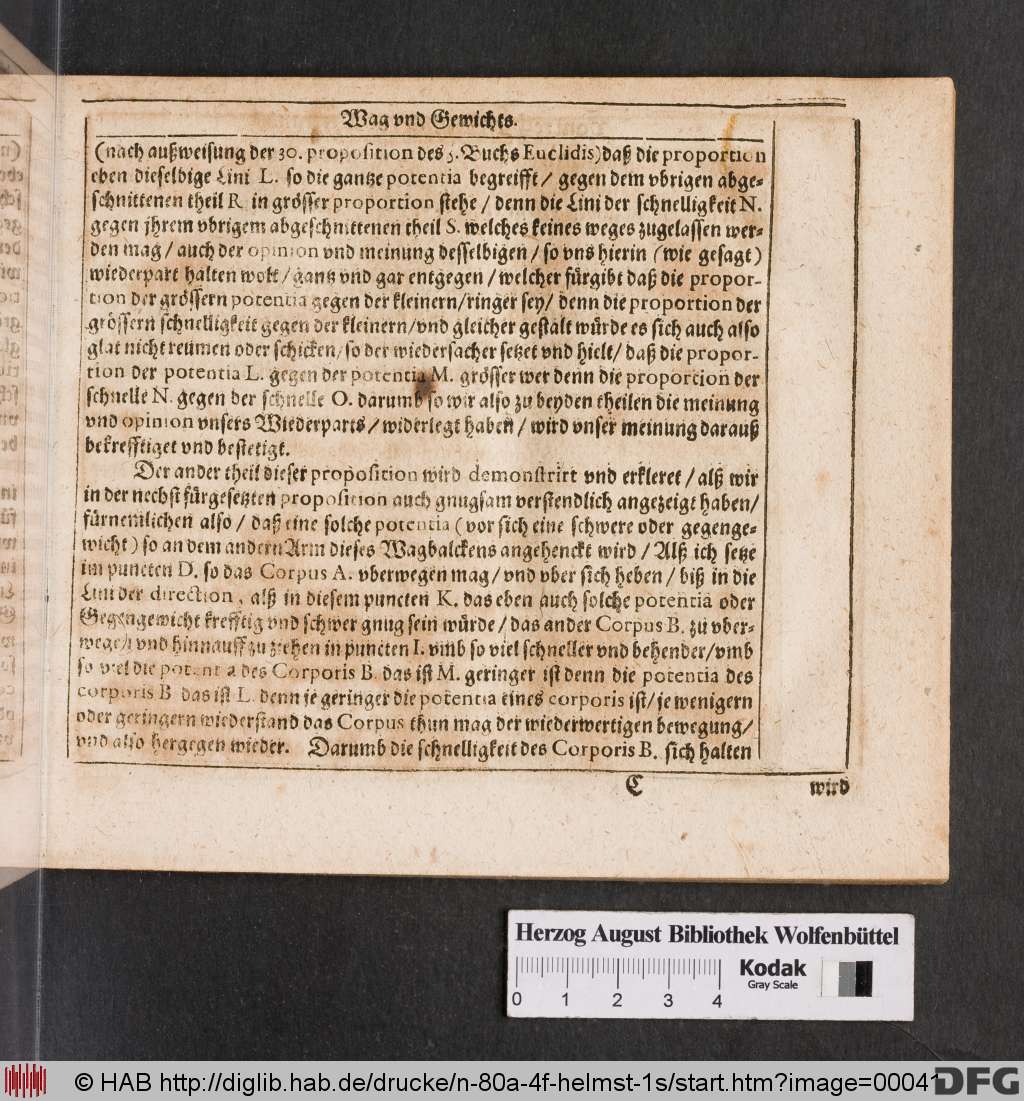 Wag vnd Gewichts.
(nach außweisung der 30. proposition des 5. Buchs Euclidis) daß die proportion
eben dieselbige Lini L. so die gantze potentia begreifft / gegen dem vbrigen abge-
schnittenen theil R in grösser proportion stehe / denn die Lini der schnelligkeit N.
gegen jhrem vbrigem abgeschnittenen theil S. welches keines weges zugelassen wer-
den mag / auch der opinion vnd meinung desselbigen / so vns hierin (wie gesagt)
wiederpart halten wolt / gantz vnd gar entgegen / welcher fürgibt daß die propor-
tion der grössern potentia gegen der kleinern / ringer sey / denn die proportion der
grössern schnelligkeit gegen der kleinern / vnd gleicher gestalt würde es sich auch also
glat nicht reumen oder schicken / so der wiedersacher setzet vnd hielt / daß die propor-
tion der potentia L. gegen der potentia M. grösser wer denn die proportion der
schnelle N. gegen der schnelle O. darumb so wir also zu beyden theilen die meinung
vnd opinion vnsers Wiederparts / widerlegt haben / wird vnser meinung darauß
bekrefftiget vnd bestetigt.
Der ander theil dieser proposition wird demonstrirt vnd erkleret / alß wir
in der nechst fürgesetzten proposition auch gnugsam verstendlich angezeigt haben /
fürnemlichen also / daß eine solche potentia (vor sich eine schwere oder gegenge-
wicht) so an dem andern Arm dieses Wagbalckens angehenckt wird / Alß ich setze
im puncten D. so das Corpus A. vberwegen mag / vnd vber sich heben / biß in die
Lini der direction, alß in diesem puncten K. das eben auch solche potentia oder
Gegengewicht krefftig vnd schwer gnug sein würde / das ander Corpus B. zu vber-
wegen vnd hinnauff zu ziehen in puncten I. vmb so viel schneller vnd behender / vmb
so viel die potentia des Corporis B. das ist M. geringer ist denn die potentia des
corporis B das ist L. denn je geringer die potentia eines corporis ist / je wenigern
oder geringern wiederstand das Corpus thun mag der wiederwertigen bewegung /
vnd also hergegen wieder. Darumb die schnelligkeit des Corporis B. sich halten
C wird
Herzog August Bibliothek Wolfenbüttel
Kodak
Gray Scale
0 1 2 3 4
© HAB http://diglib.hab.de/drucke/n-80a-4f-helmst-1s/start.htm?image=00041
DFG